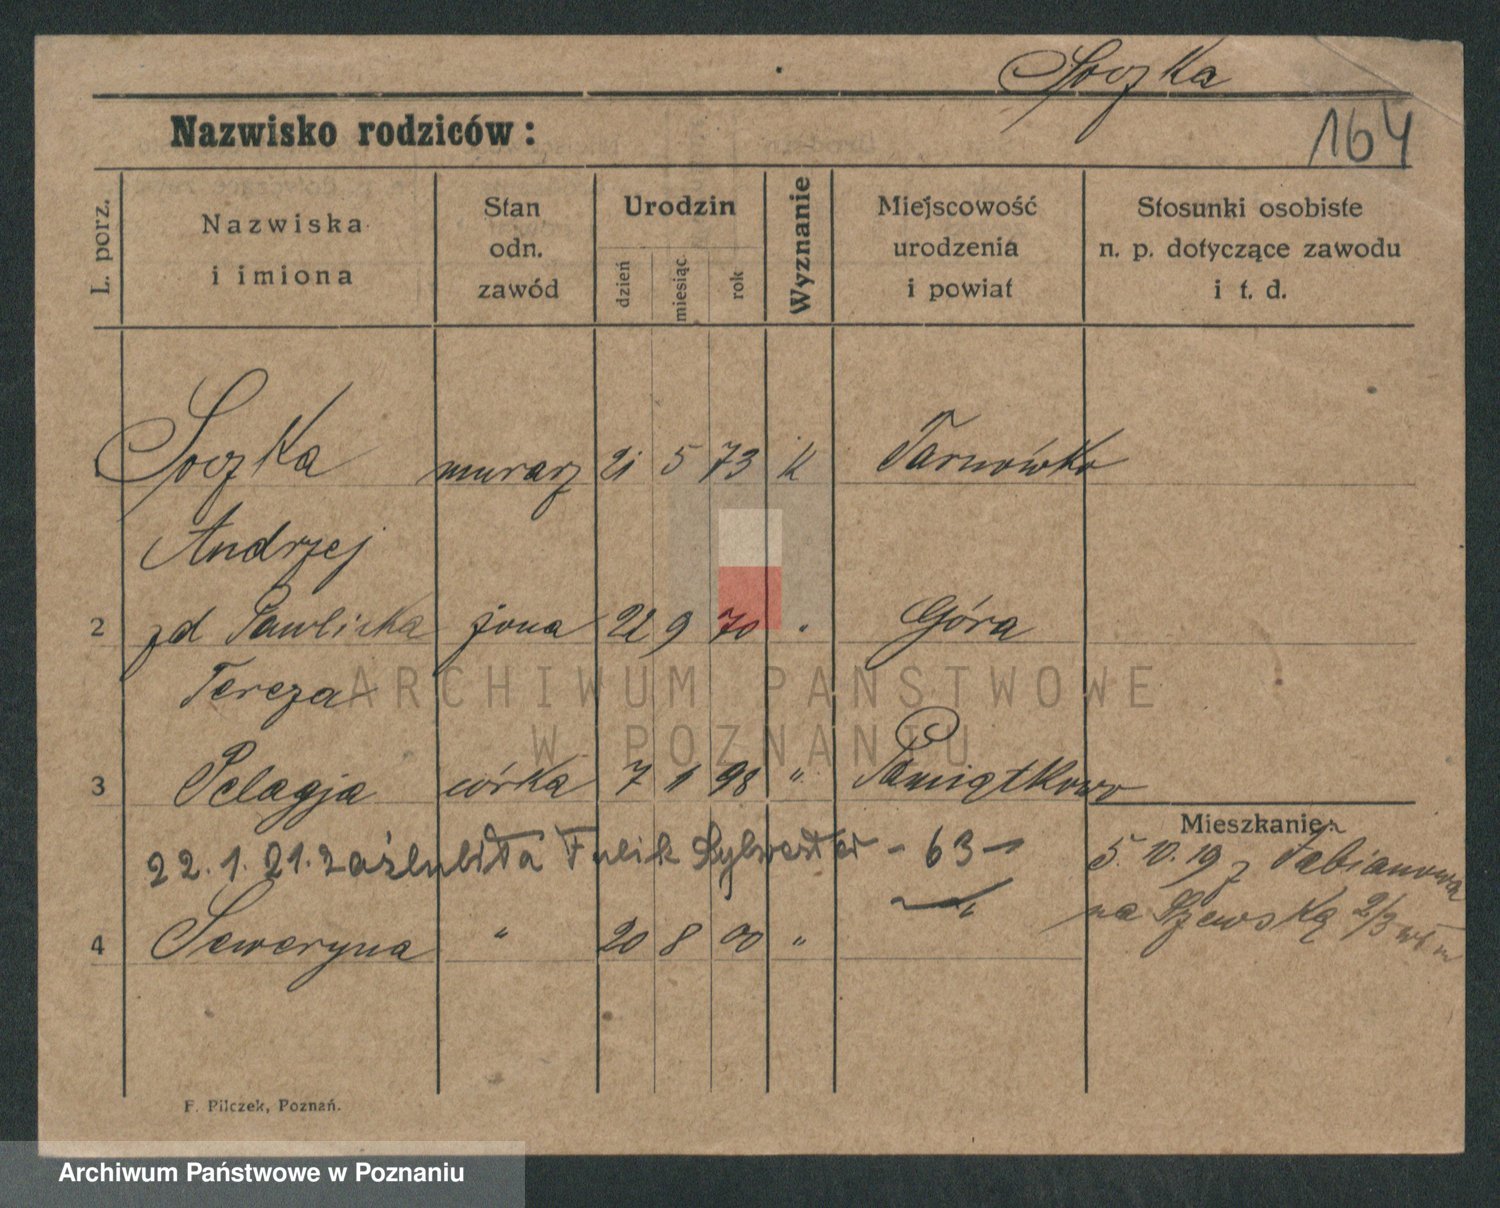 Soczka
Nazwisko rodziców:
164
L. porz.
Nazwiska i imiona
Stan odn. zawód
Urodzin
dzień
miesiąc
rok
Wyznanie
Miejscowość urodzenia i powiat
Stosunki osobiste n. p. dotyczące zawodu i t. d.
Soczka murarz 21 5 73 k Tarnówko
Andrzej
2 zd Pawlicka żona 22 9 70 " Góra
Tereza
ARCHIWUM PAŃSTWOWE
W POZNANIU
3 Pelagja córka 7 1 98 " Pamiątkowo
22.1.21. zaślubiła Sylwester - 63 -
4 Seweryna " 20 8 00 " "
Mieszkanie:
5.10.19 z Fabianowa
na Szewską 2/3
F. Pilczek, Poznań.
Archiwum Państwowe w Poznaniu